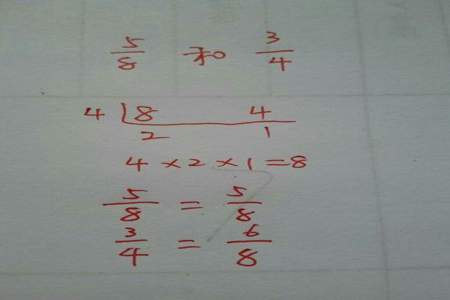 5/8 和 3/4
4 8 4
2 1
4×2×1=8
5/8 = 5/8
3/4 = 6/8